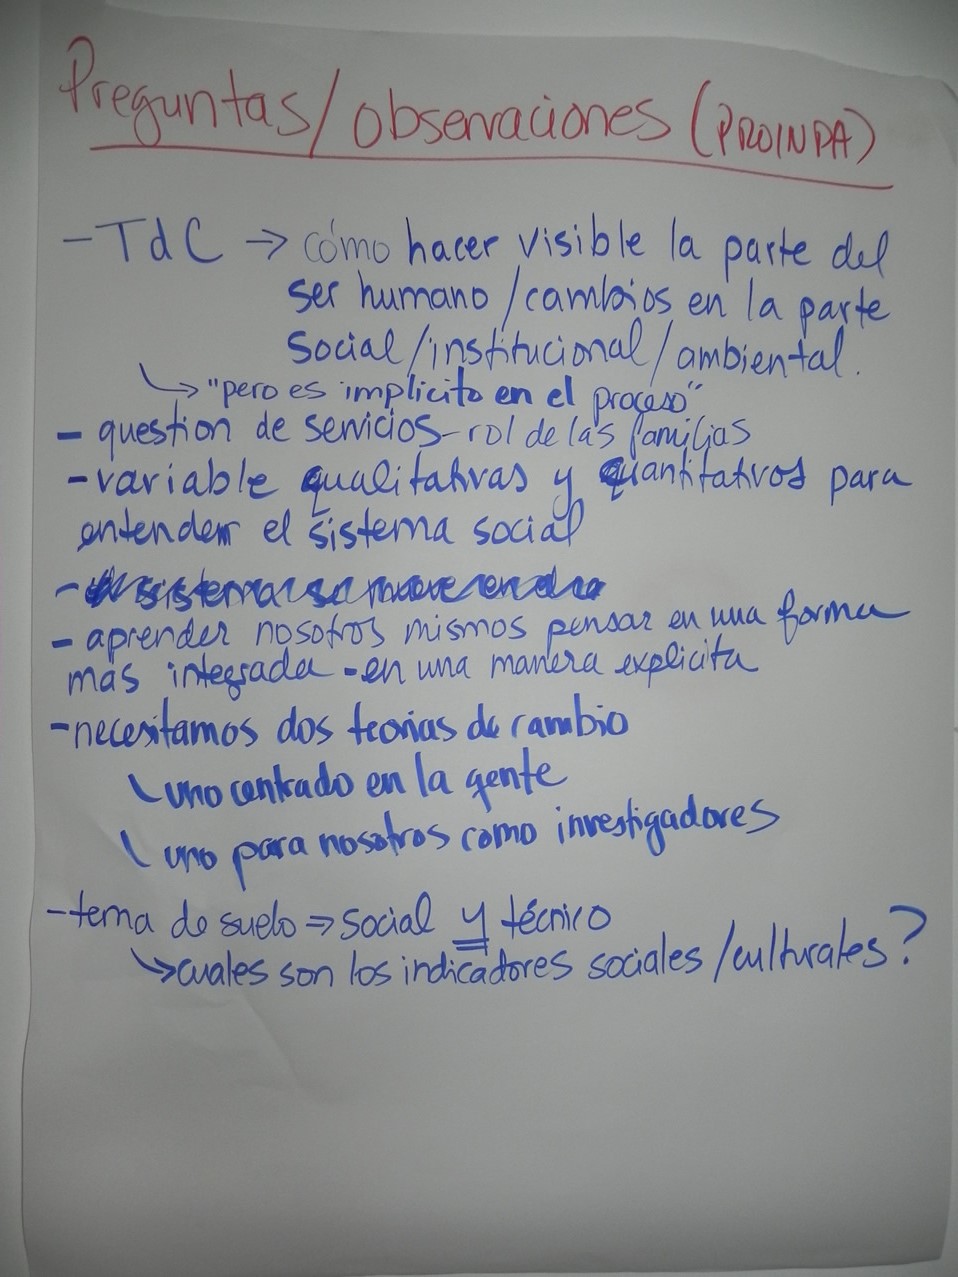 Preguntas/observaciones (PROINPA)
- TdC → cómo hacer visible la parte del
ser humano/cambios en la parte
Social/institucional/ambiental.
↳ "pero es implícito en el proceso"
- question de servicios - rol de las familias
- variable qualitativas y quantitativos para
entender el sistema social
- aprender nosotros mismos pensar en una forma
mas integrada - en una manera explicita
- necesitamos dos teorias de cambio
uno centrado en la gente
uno para nosotros como investigadores
- tema de suelo ⇒ social y técnico
↳ cuales son los indicadores sociales/culturales?